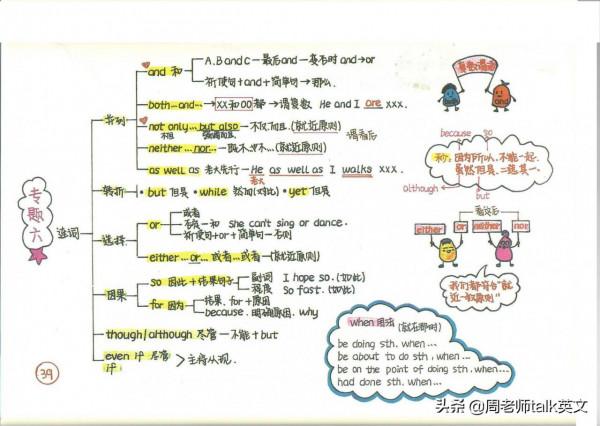 专题六
连词
并列
and 和
A、B and C—最后and—变否时 and→or
祈使句+and+简单句→那么.
both...and...→XX和OO都→谓复数 He and I are xxx.
not only...but also—不仅而且.(就近原则)
neither...nor...—既不也不...(就近原则)
谓看后
as well as 老大先行—He as well as I walks xxx.
老大
转折
but 但是 · while 然而(对比) · yet 但是
选择
or
或者
否定—和 she can't sing or dance.
祈使句+or+简单句—否则
either...or...或者...或者(就近原则)
因果
so 因此+结果句子
副词 I hope so.(如此)
程度 So fast.(如此)
for 因为
结果, for+原因
because. 明确原因. why
though/although 尽管—不能+but
even if 尽管
if
主将从现.
39
复数谓语
and
because
so
和: 因为所以、不能一起.
虽然但是、二选其一.
although
but
看近后
either
or
neither
nor
我们都符合"就近一致原则"
when 用法 (就在那时)
be doing sth, when...
be about to do sth, when...
be on the point of doing sth, when...
had done sth, when...
头条 @周老师talk英文